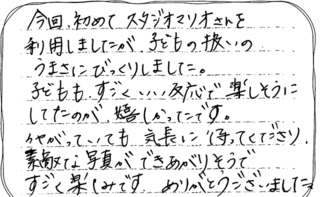 今回、初めて スタジオマリオさんを
利用しましたが、子どもの扱いの
うまさにびっくりしました。
子どもも、すごく いい反応で 楽しそうに
してたのが、嬉しかったです。
いやがっていても 気長に待ってくださり、
素敵な写真が できあがりそうで
すごく楽しみです ありがとうございました